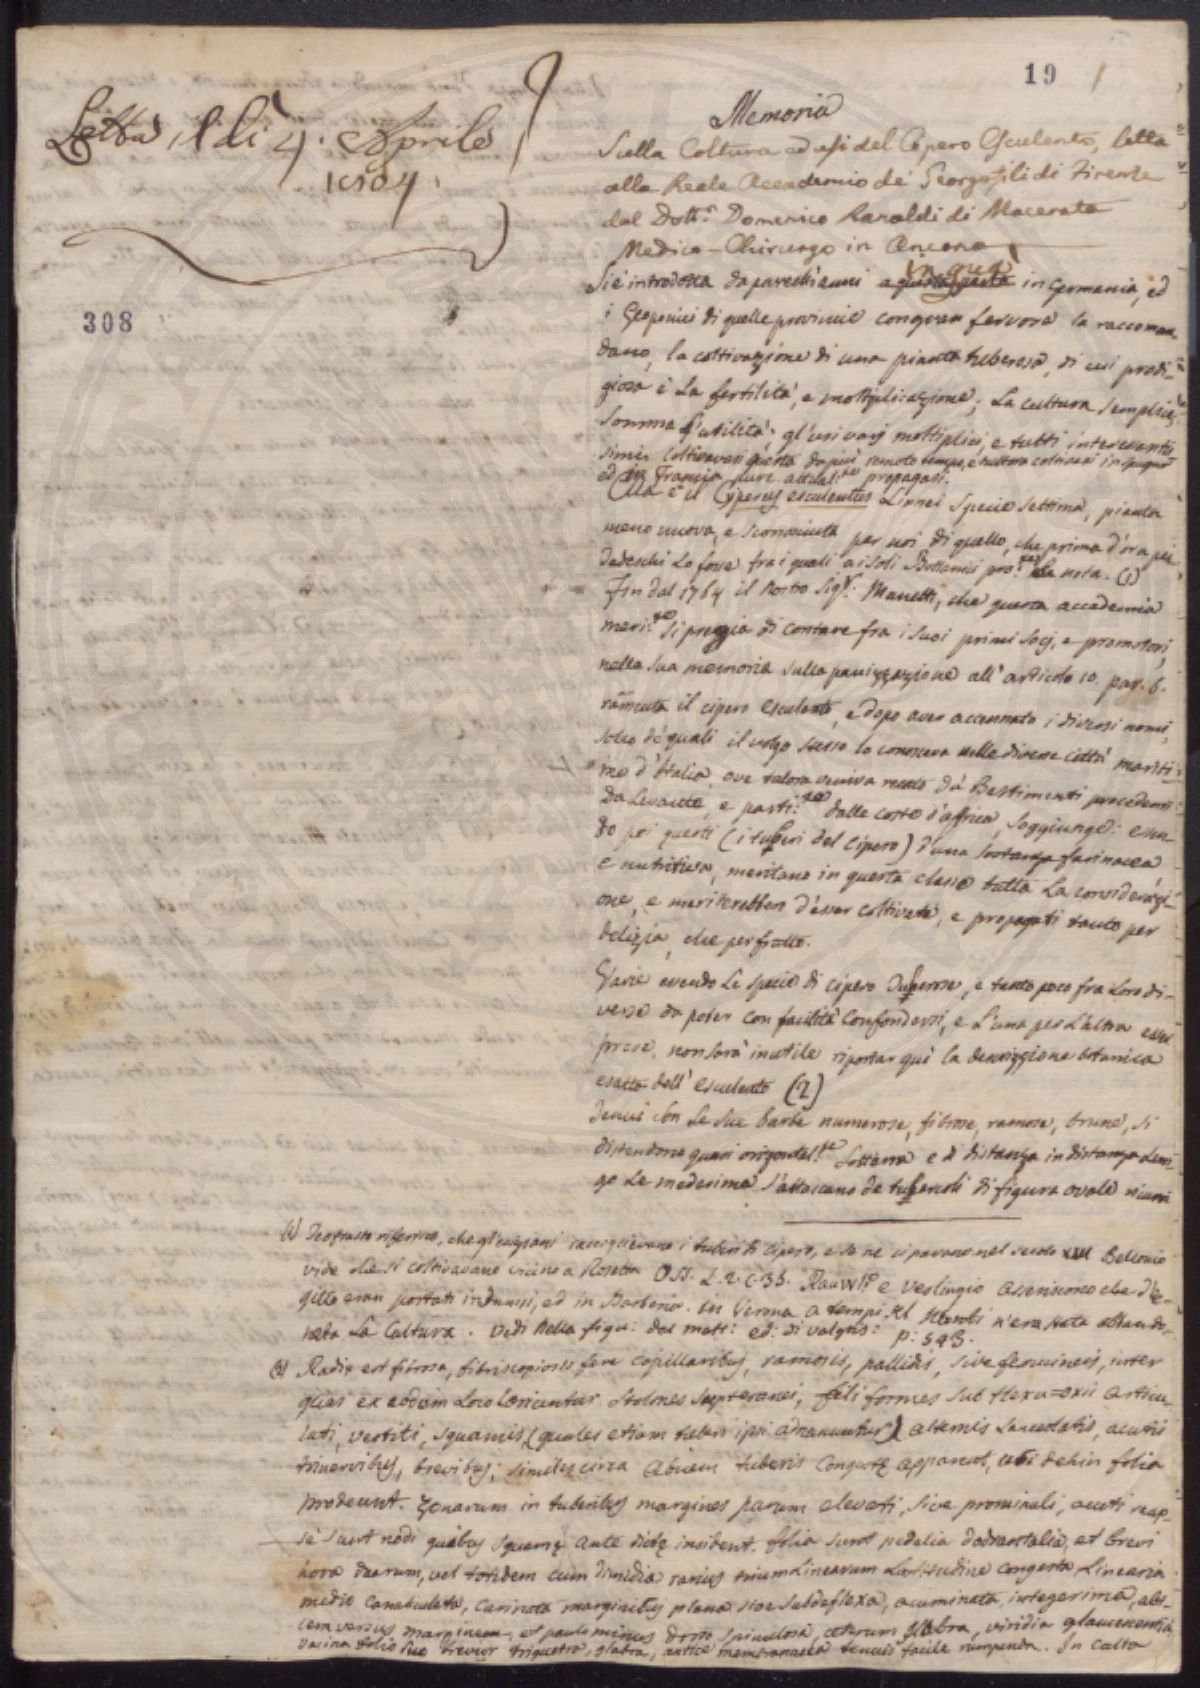 19
1
Letta il dì 4. Aprile
1804.
308
Memoria
Sulla Coltura ed usi del Cipero Esculento, letta
alla Reale Accademia de' Georgofili di Firenze
dal Dott.r Domenico Ranaldi di Macerata
Medico-Chirurgo in Ancona
Si è introdotta da parecchi anni a questa parte in Germania, ed
i Geoponici di quelle provincie con gran fervore la raccoman
dano, la coltivazione di una pianta tuberosa, di cui prodi-
giosa è la fertilità, e moltiplicazione; La cultura semplice
Somma l'utilità; gl'usi varj moltiplici, e tutti interessantis
simi. Coltivavasi questa da più remoto tempo, e tuttora coltivasi in Spagna
ed in Francia pure propagasi.
Ella è il Cyperus esculentus Linnei Specie settima, pianta
meno nuova, e sconosciuta per noi di quello, che prima d'ora pei
Tedeschi lo fosse fra i quali a i soli Bottanici nota. (1)
Fin dal 1764 il Nostro Sigr. Manetti, che questa accademia
merit.te si preggia di contare fra i suoi primi socj, e promotori,
nella sua memoria sulla panizzazione all'articolo 10. pag. 6.
rammenta il cipero esculento, e dopo aver accennato i diversi nomi,
sotto de' quali il volgo stesso lo conosceva nelle diverse città maritti-
me d'Italia, ove talora veniva recato da' Bastimenti procedenti
da Levante, e parti.te dalle coste d'affrica, soggiunge: essen-
do poi questi (i tuberi del Cipero) d'una sostanza farinacea,
e nutritiva, meritano in questa classe tutta la considerazi-
one, e meriterebbero d'esser coltivati, e propagati tanto per
delizia, che per frutto.
Varie essendo le specie di cipero tuberose, e tanto poco fra loro di-
verse da poter con facilità confondersi, e l'una per l'altra esser
prese, non sarà inutile riportar qui la descrizzione botanica
esatta dell'esculento (2)
con le sue barbe numerose, fibrose, ramose, brune, si
distendono quasi orizontal.te sotterra e di distanza in distanza
le medesime s'attaccano de tubercoli di figura ovale
(1) Teofrasto riferisce, che gl'egiziani raccoglievano i tuberi di cipero, e se ne cipavano nel secolo XVI Bellonio
vide che si coltivavano vicino a Rosetta Oss. L. 2. C. 35. Rauwlf.o e Veslingio asseriscono che d'E-
gitto eran portati in Tunisi, ed in Barberia. In Verona a tempi del n'era stata abbando-
nata la Coltura. Vedi nella figu: del matt: ed: di valgris: p: 593.
(2) Radix est fibrosa, fibris copiosis fere capillaribus, ramosis, pallidis, sive ferrugineis, inter
quas ex eodem loco oriuntur stolones supterranei, filiformes sub flexu=oxii articu
lati, vestiti, squamis, (quales etiam tuberi ipsi adnascuntur) alternis lanceolatis, acutis
trinervibus, brevibus; similes circa apicem tuberis congestę apparent, ubi dehin folia
prodeunt. Zonarum in tuberibus margines parum elevati, sive prominuli, acuti reap-
se sunt nodi quibus squamę ante dictę insident. folia sunt pedalia dodrantalia, et brevi
hora duarum, vel totidem cum dimidia rarius trium linearum latitudine congesta, linearia
medio canaliculata, carinata marginibus plana sive subdeflexa, acuminata, integerima, abi-
cem versus marginem, et paulo minus dorso spinulosa, ceterum glabra, viridia glaucescentia
vagina folio suo brevior triquetra, glabra, antice membranacea tenuis facile rumpenda. In Culto